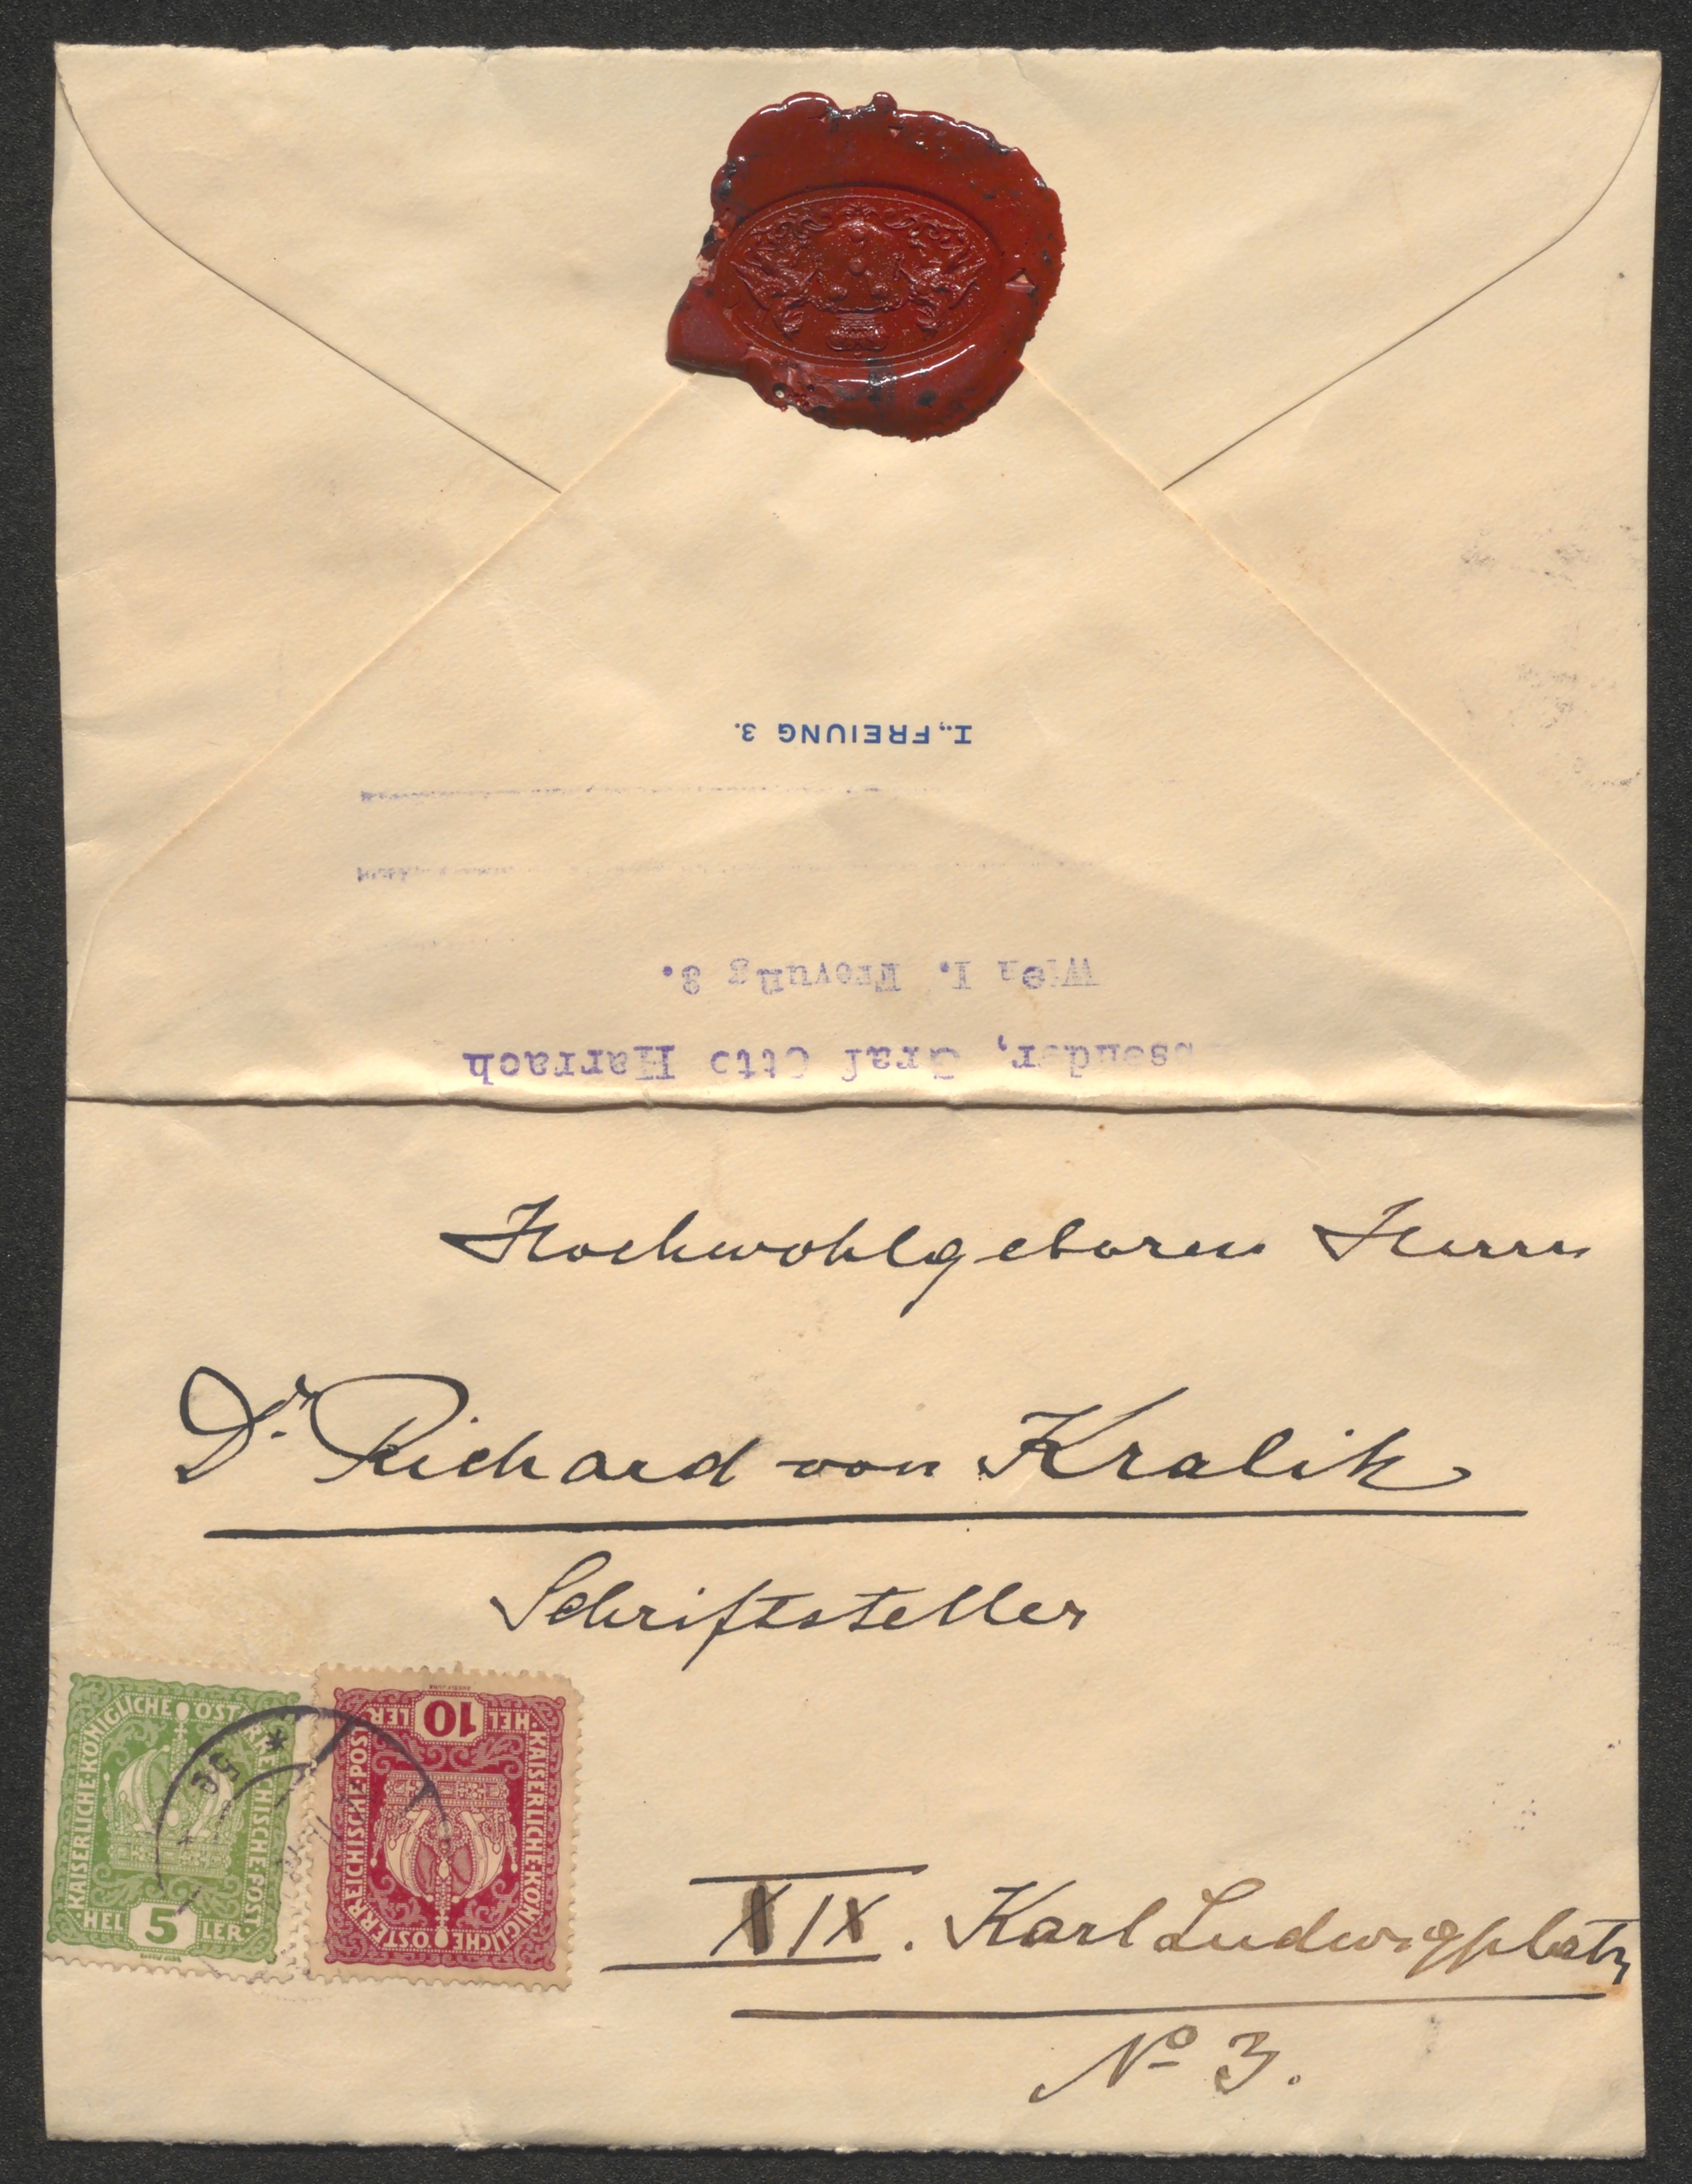 I., FREIUNG 3.
Wien I. Freyung 3.
Absender, Graf Otto Harrach
Hochwohlgeboren Herrn
Dr. Richard von Kralik
Schriftsteller
KAISERLICHE·KÖNIGLICHE ÖSTERREICHISCHE·POST·
HEL 5 LER
KAISERLICHE·KÖNIGLICHE ÖSTERREICHISCHE·POST·
HEL 10 LER
XIX. Karl Ludwigplatz
No 3.